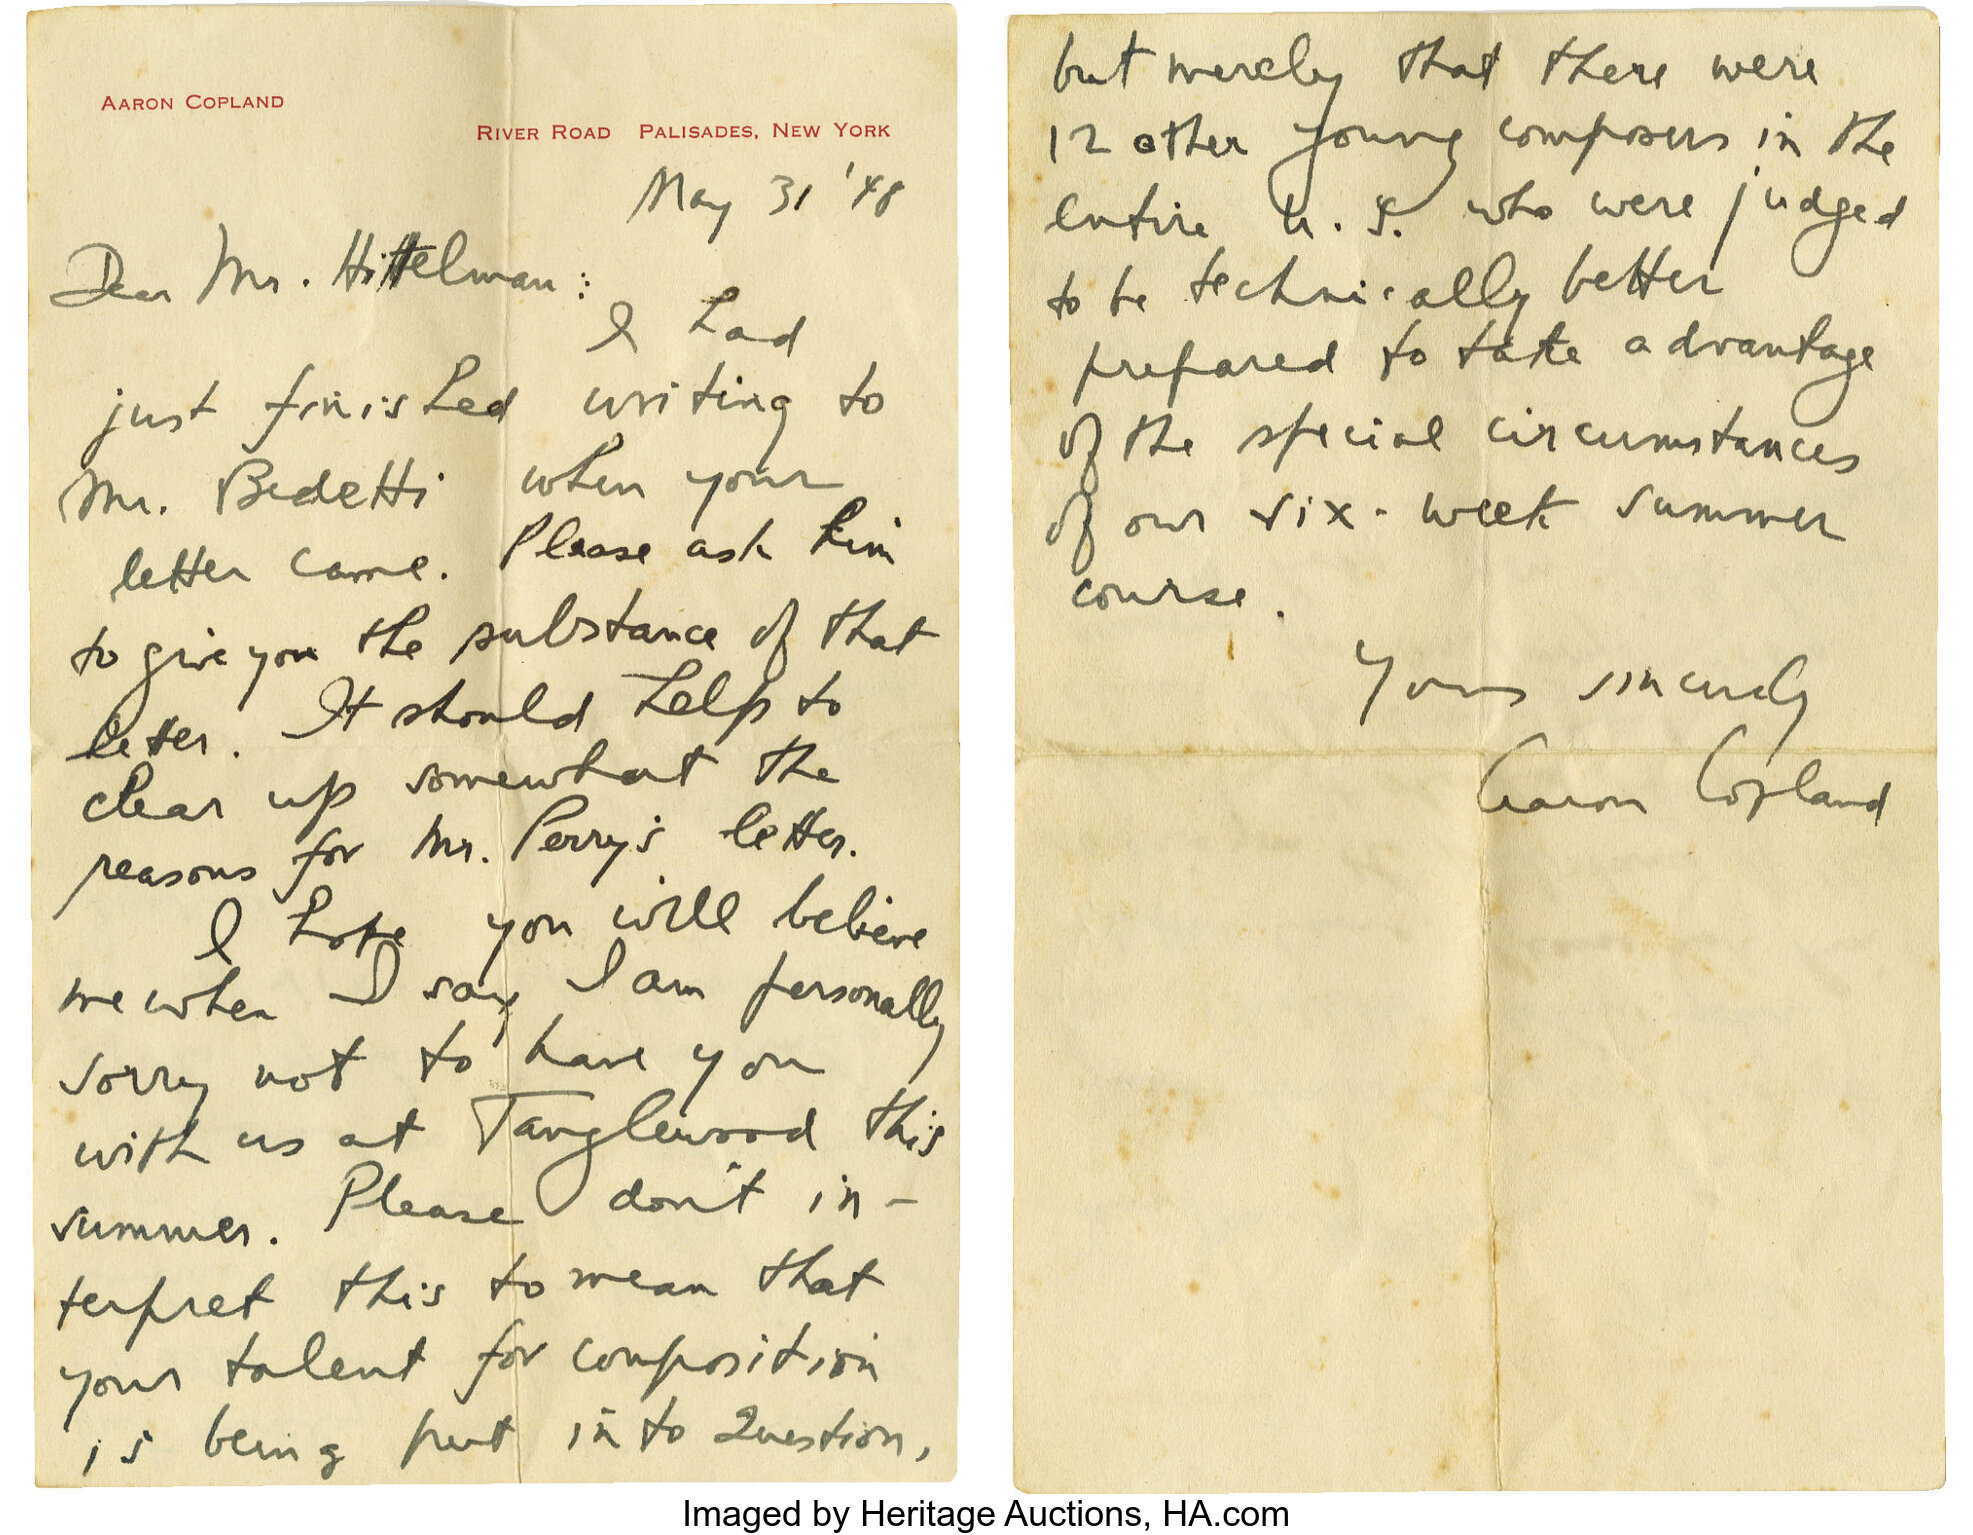 AARON COPLAND
RIVER ROAD PALISADES, NEW YORK
May 31 '48
Dear Mr. Hittelman:
I had
just finished writing to
Mr. Bedetti when your
letter came. Please ask him
to give you the substance of that
letter. It should help to
clear up somewhat the
reasons for Mr. Perry's letter.
I hope you will believe
me when I say I am personally
sorry not to have you
with us at Tanglewood this
summer. Please don't in-
terpret this to mean that
your talent for composition
is being put into Question,
but merely that there were
12 other young composers in the
entire U.S. who were judged
to be technically better
prepared to take advantage
of the special circumstances
of our six-week summer
course.
Yours sincerely
Aaron Copland
Imaged by Heritage Auctions, HA.com